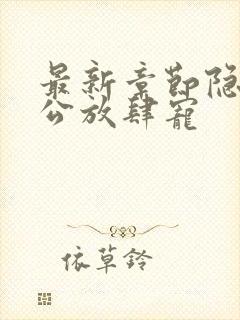 最新章节隐
公放肆宠
依草铃